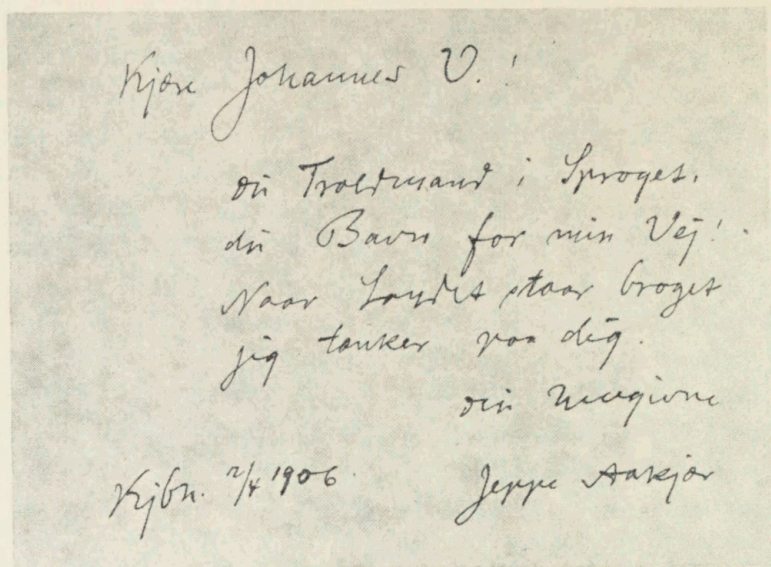 Kjære Johannes V.!
du Troldmand i Sproget,
du Bavn for min Vej!
Naar Landet staar broget
jig tænker paa dig.
din hengivne
Kjbn. 2/4 1906. Jeppe Aakjær